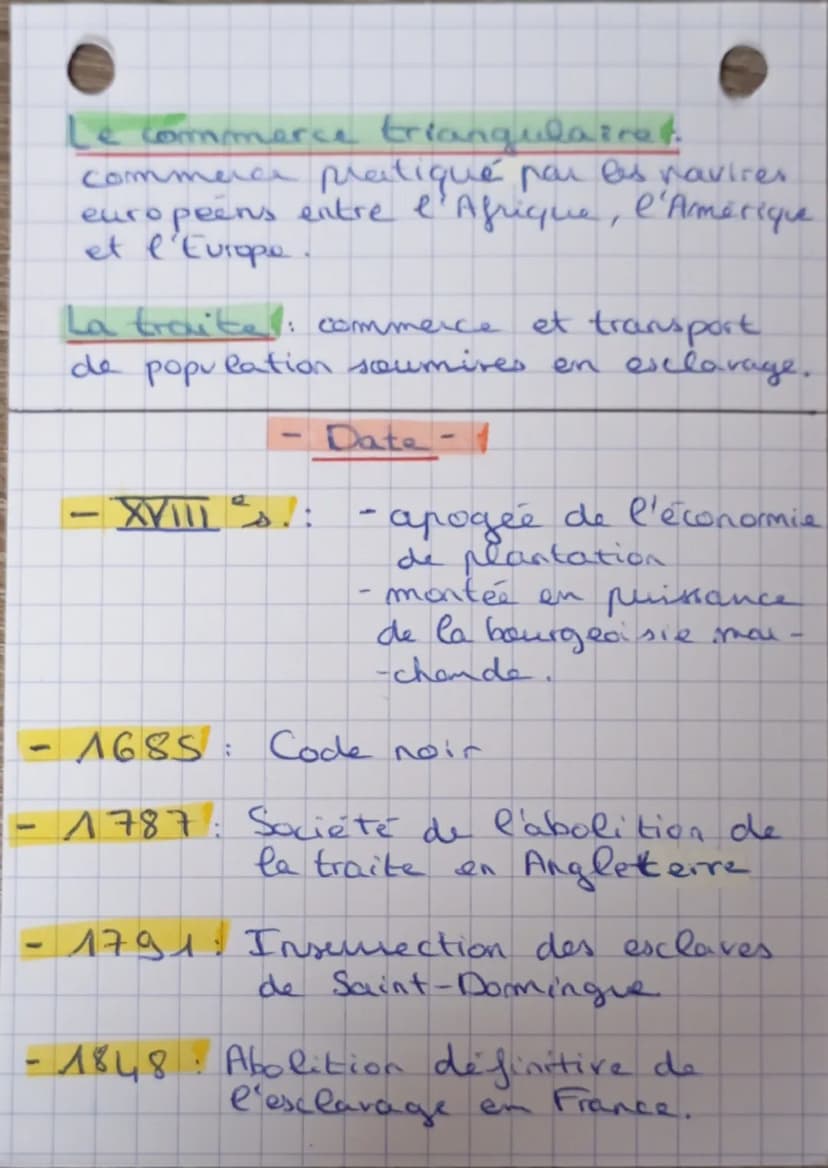 Le commerce triangulaire :
commerce pratiqué par les navires
européens entre l'Afrique, l'Amérique
et l'Europe.
La traite : commerce et transport
de population soumises en esclavage.
- Date -
- XVIII e s. : - apogée de l'économie
de plantation
- montée en puissance
de la bourgeoisie mar-
-chande.
- 1685 : Code noir
- 1787 : Société de l'abolition de
la traite en Angleterre
- 1791 : Insurrection des esclaves
de Saint-Domingue
- 1848 : Abolition définitive de
l'esclavage en France.